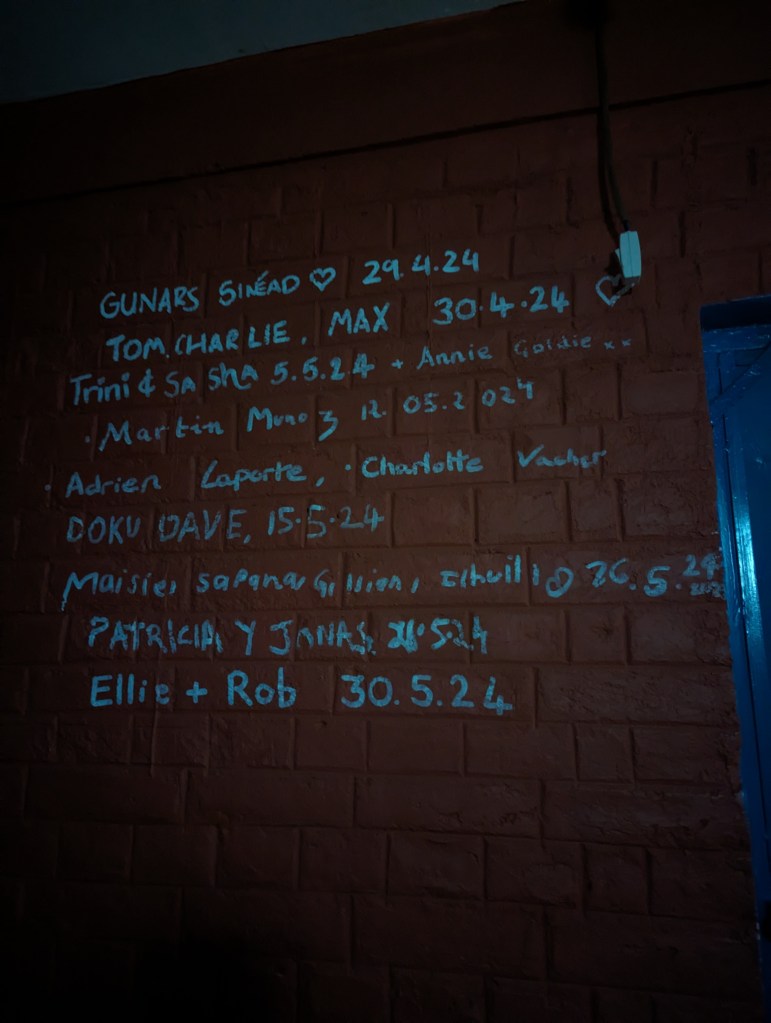 GUNARS SINÉAD ♡ 29.4.24
TOM, CHARLIE, MAX 30.4.24 ♡
Trini & SASHA 5.5.24 + Annie Goldie xx
· Martin Munoz 12.05.2024
· Adrien Laporte, · Charlotte Vacher
DOKU DAVE, 15.5.24
Maisie, sapana 26.5.24
PATRICIA Y JONAS 5.24
Ellie + Rob 30.5.24